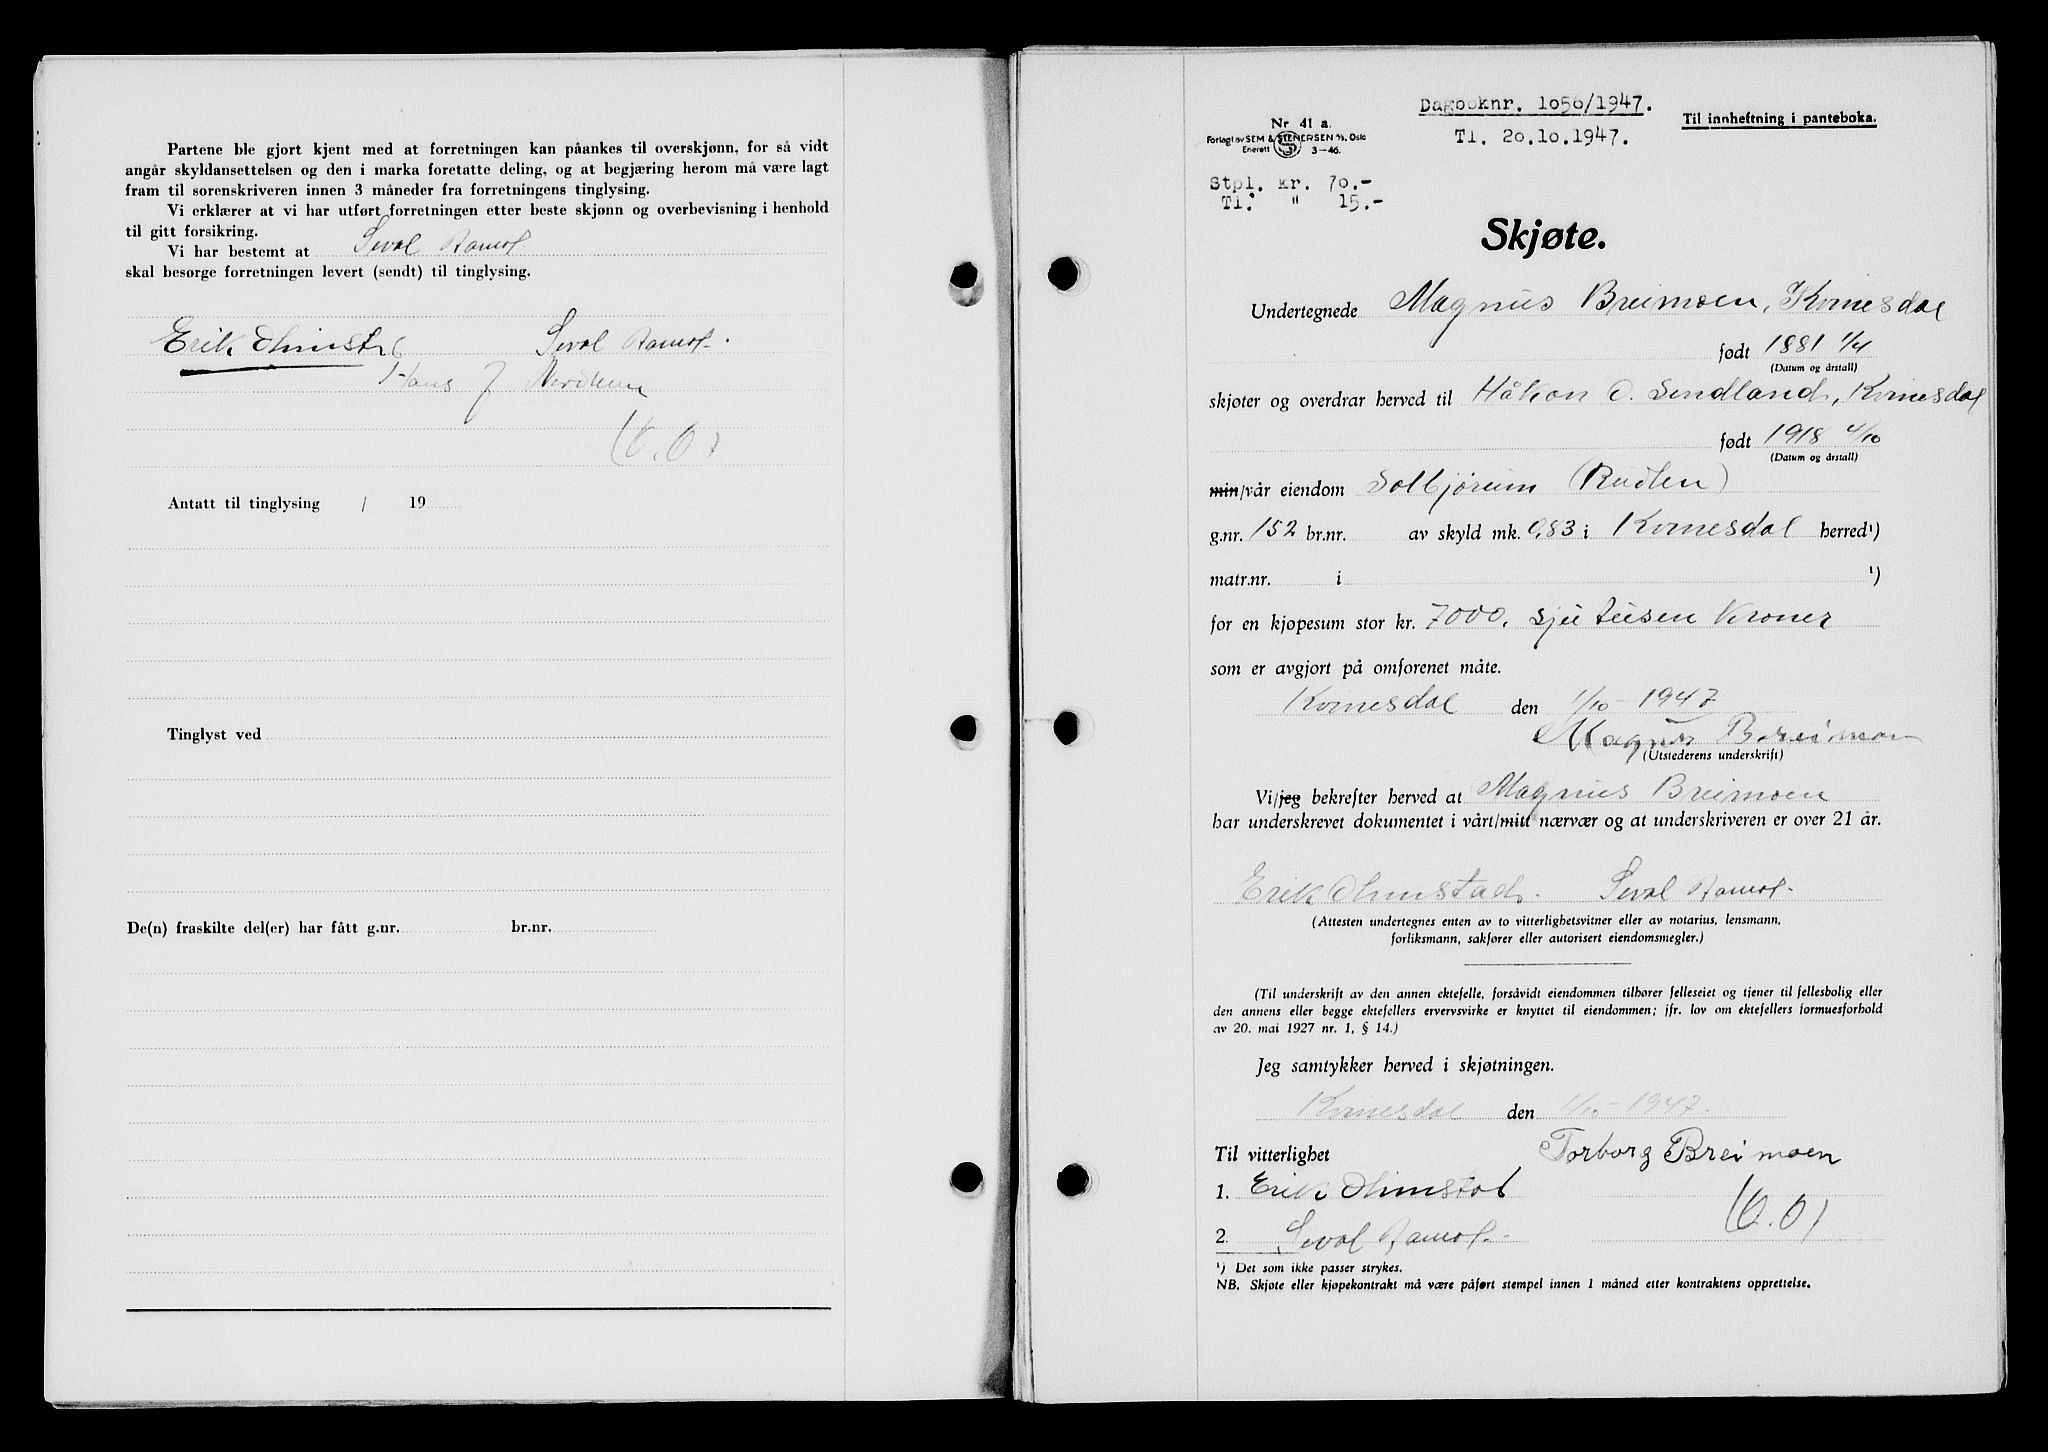 Partene ble gjort kjent med at forretningen kan påankes til overskjønn, for så vidt
angår skyldansettelsen og den i marka foretatte deling, og at begjæring herom må være lagt
fram til sorenskriveren innen 3 måneder fra forretningens tinglysing.
Vi erklærer at vi har utført forretningen etter beste skjønn og overbevisning i henhold
til gitt forsikring.
Vi har bestemt at Seval
skal besørge forretningen levert (sendt) til tinglysing.
Erik Seval
Hans J
Antatt til tinglysing / 19
Tinglyst ved
De(n) fraskilte del(er) har fått g.nr. br.nr.
Dagboknr. 1056/1947.
Tl. 20.10.1947.
Til innheftning i panteboka.
Nr. 41 a.
Forlagt av SEM & STENERSEN A/S, Oslo
Enerett S 3-46.
Stpl. kr. 70.-
Tl. " 15.-
Skjøte.
Undertegnede Magnus Breimoen, Kvinesdal
født 1881 1/4
(Datum og årstall)
skjøter og overdrar herved til Håkon O. Sindland, Kvinesdal
født 1918 4/10
(Datum og årstall)
min/vår eiendom Solbjørum (Rudlen)
g.nr. 152 br.nr. av skyld mk. 0,83 i Kvinesdal herred¹)
matr.nr. i ¹)
for en kjøpesum stor kr. 7000, sju tusen kroner
som er avgjort på omforenet måte.
Kvinesdal den 1/10-1947
Magnus Breimoen
(Utstederens underskrift)
Vi/jeg bekrefter herved at Magnus Breimoen
har underskrevet dokumentet i vårt/mitt nærvær og at underskriveren er over 21 år.
Erik Omstad. Seval
(Attesten undertegnes enten av to vitterlighetsvitner eller av notarius, lensmann,
forliksmann, sakfører eller autorisert eiendomsmegler.)
(Til underskrift av den annen ektefelle, forsåvidt eiendommen tilhører felleseiet og tjener til fellesbolig eller
den annens eller begge ektefellers ervervsvirke er knyttet til eiendommen; jfr. lov om ektefellers formuesforhold
av 20. mai 1927 nr. 1, § 14.)
Jeg samtykker herved i skjøtningen.
Kvinesdal den 1/10-1947.
Til vitterlighet Torborg Breimoen
1. Erik
2. Seval
(O.O)
¹) Det som ikke passer strykes.
NB. Skjøte eller kjøpekontrakt må være påført stempel innen 1 måned etter kontraktens opprettelse.